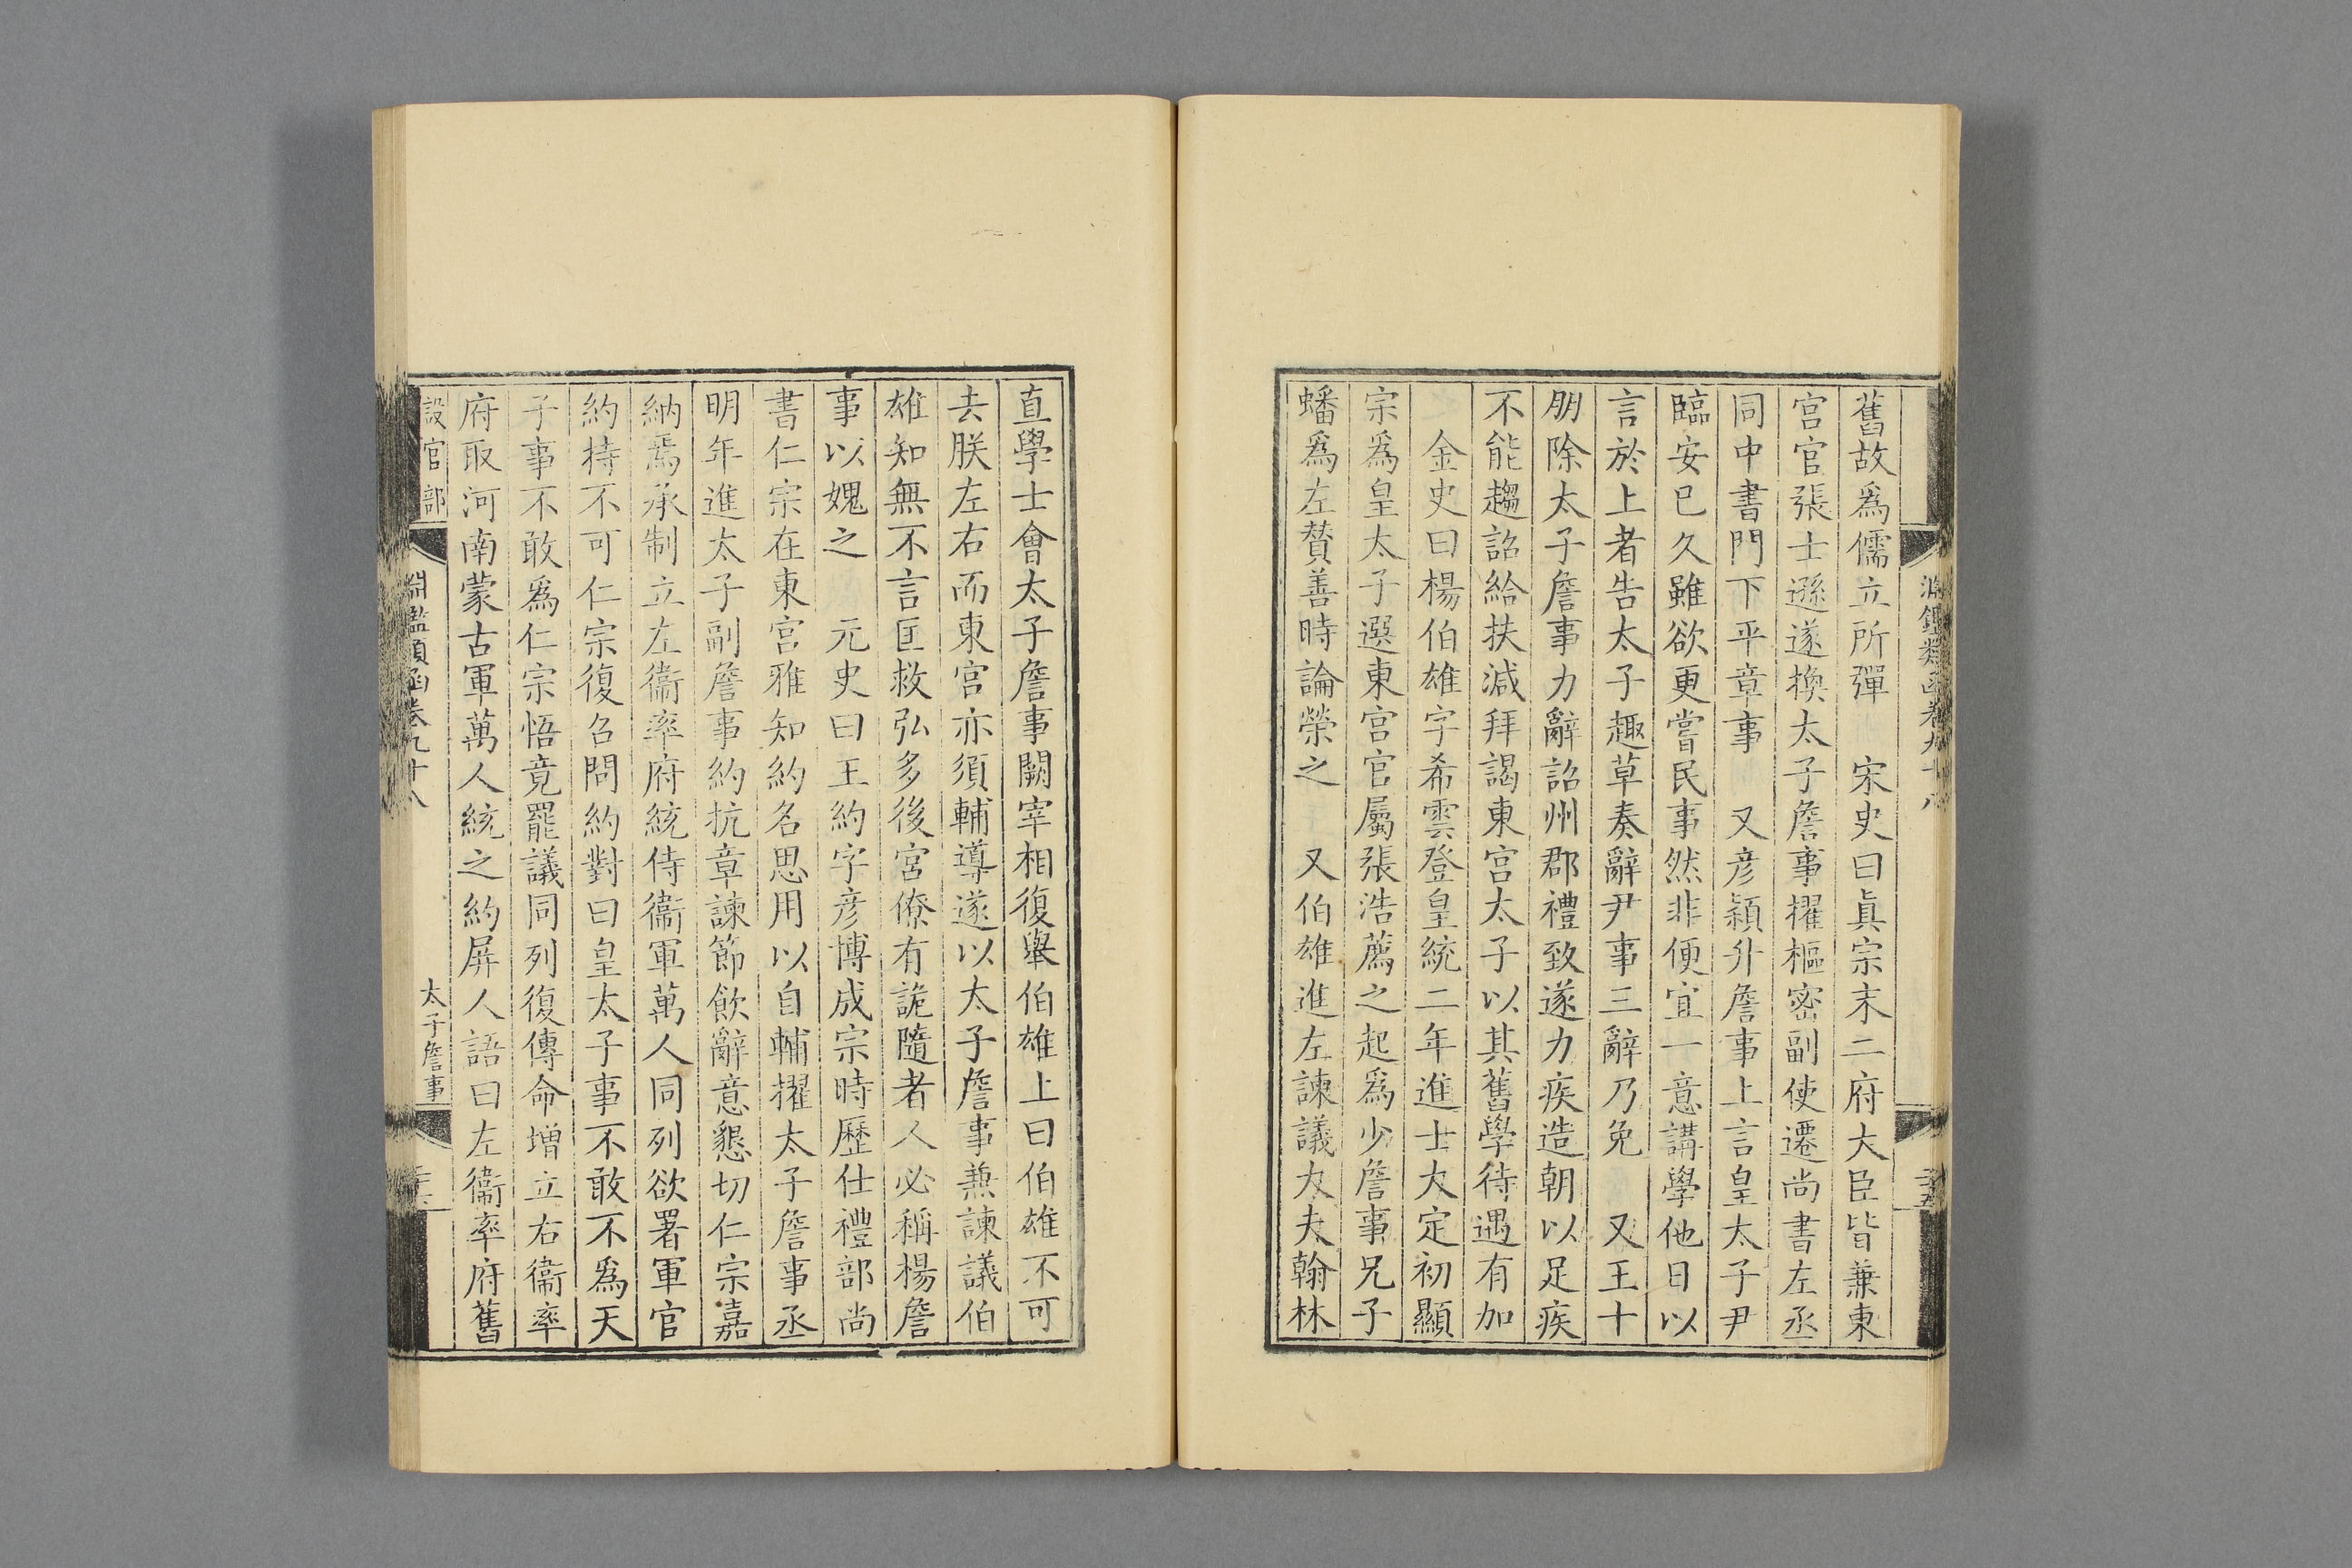 舊故爲儒立所彈　宋史曰眞宗末二府大臣皆兼東
宮官張士遜遂換太子詹事擢樞密副使遷尚書左丞
同中書門下平章事　又彦穎升詹事上言皇太子尹
臨安已久雖欲更嘗民事然非便宜一意講學他日以
言於上者告太子趣草奏辭尹事三辭乃免　又王十
朋除太子詹事力辭詔州郡禮致遂力疾造朝以足疾
不能趨詔給扶減拜謁東宮太子以其舊學待遇有加
金史曰楊伯雄字希雲登皇統二年進士大定初顯
宗爲皇太子選東宮官屬張浩薦之起爲少詹事兄子
蟠爲左贊善時論榮之　又伯雄進左諫議大夫翰林
淵鑑類函卷九十八
直學士會太子詹事闕宰相復舉伯雄上曰伯雄不可
去朕左右而東宮亦須輔導遂以太子詹事兼諫議伯
雄知無不言匡救弘多後宮僚有詭隨者人必稱楊詹
事以媿之　元史曰王約字彦博成宗時歷仕禮部尚
書仁宗在東宮雅知約名思用以自輔擢太子詹事丞
明年進太子副詹事約抗章諫節飲辭意懇切仁宗嘉
納焉承制立左衞率府統侍衞軍萬人同列欲署軍官
約持不可仁宗復召問約對曰皇太子事不敢不爲天
子事不敢爲仁宗悟竟罷議同列復傳命增立右衞率
府取河南蒙古軍萬人統之約屏人語曰左衞率府舊
設官部
淵鑑類函卷九十八
太子詹事